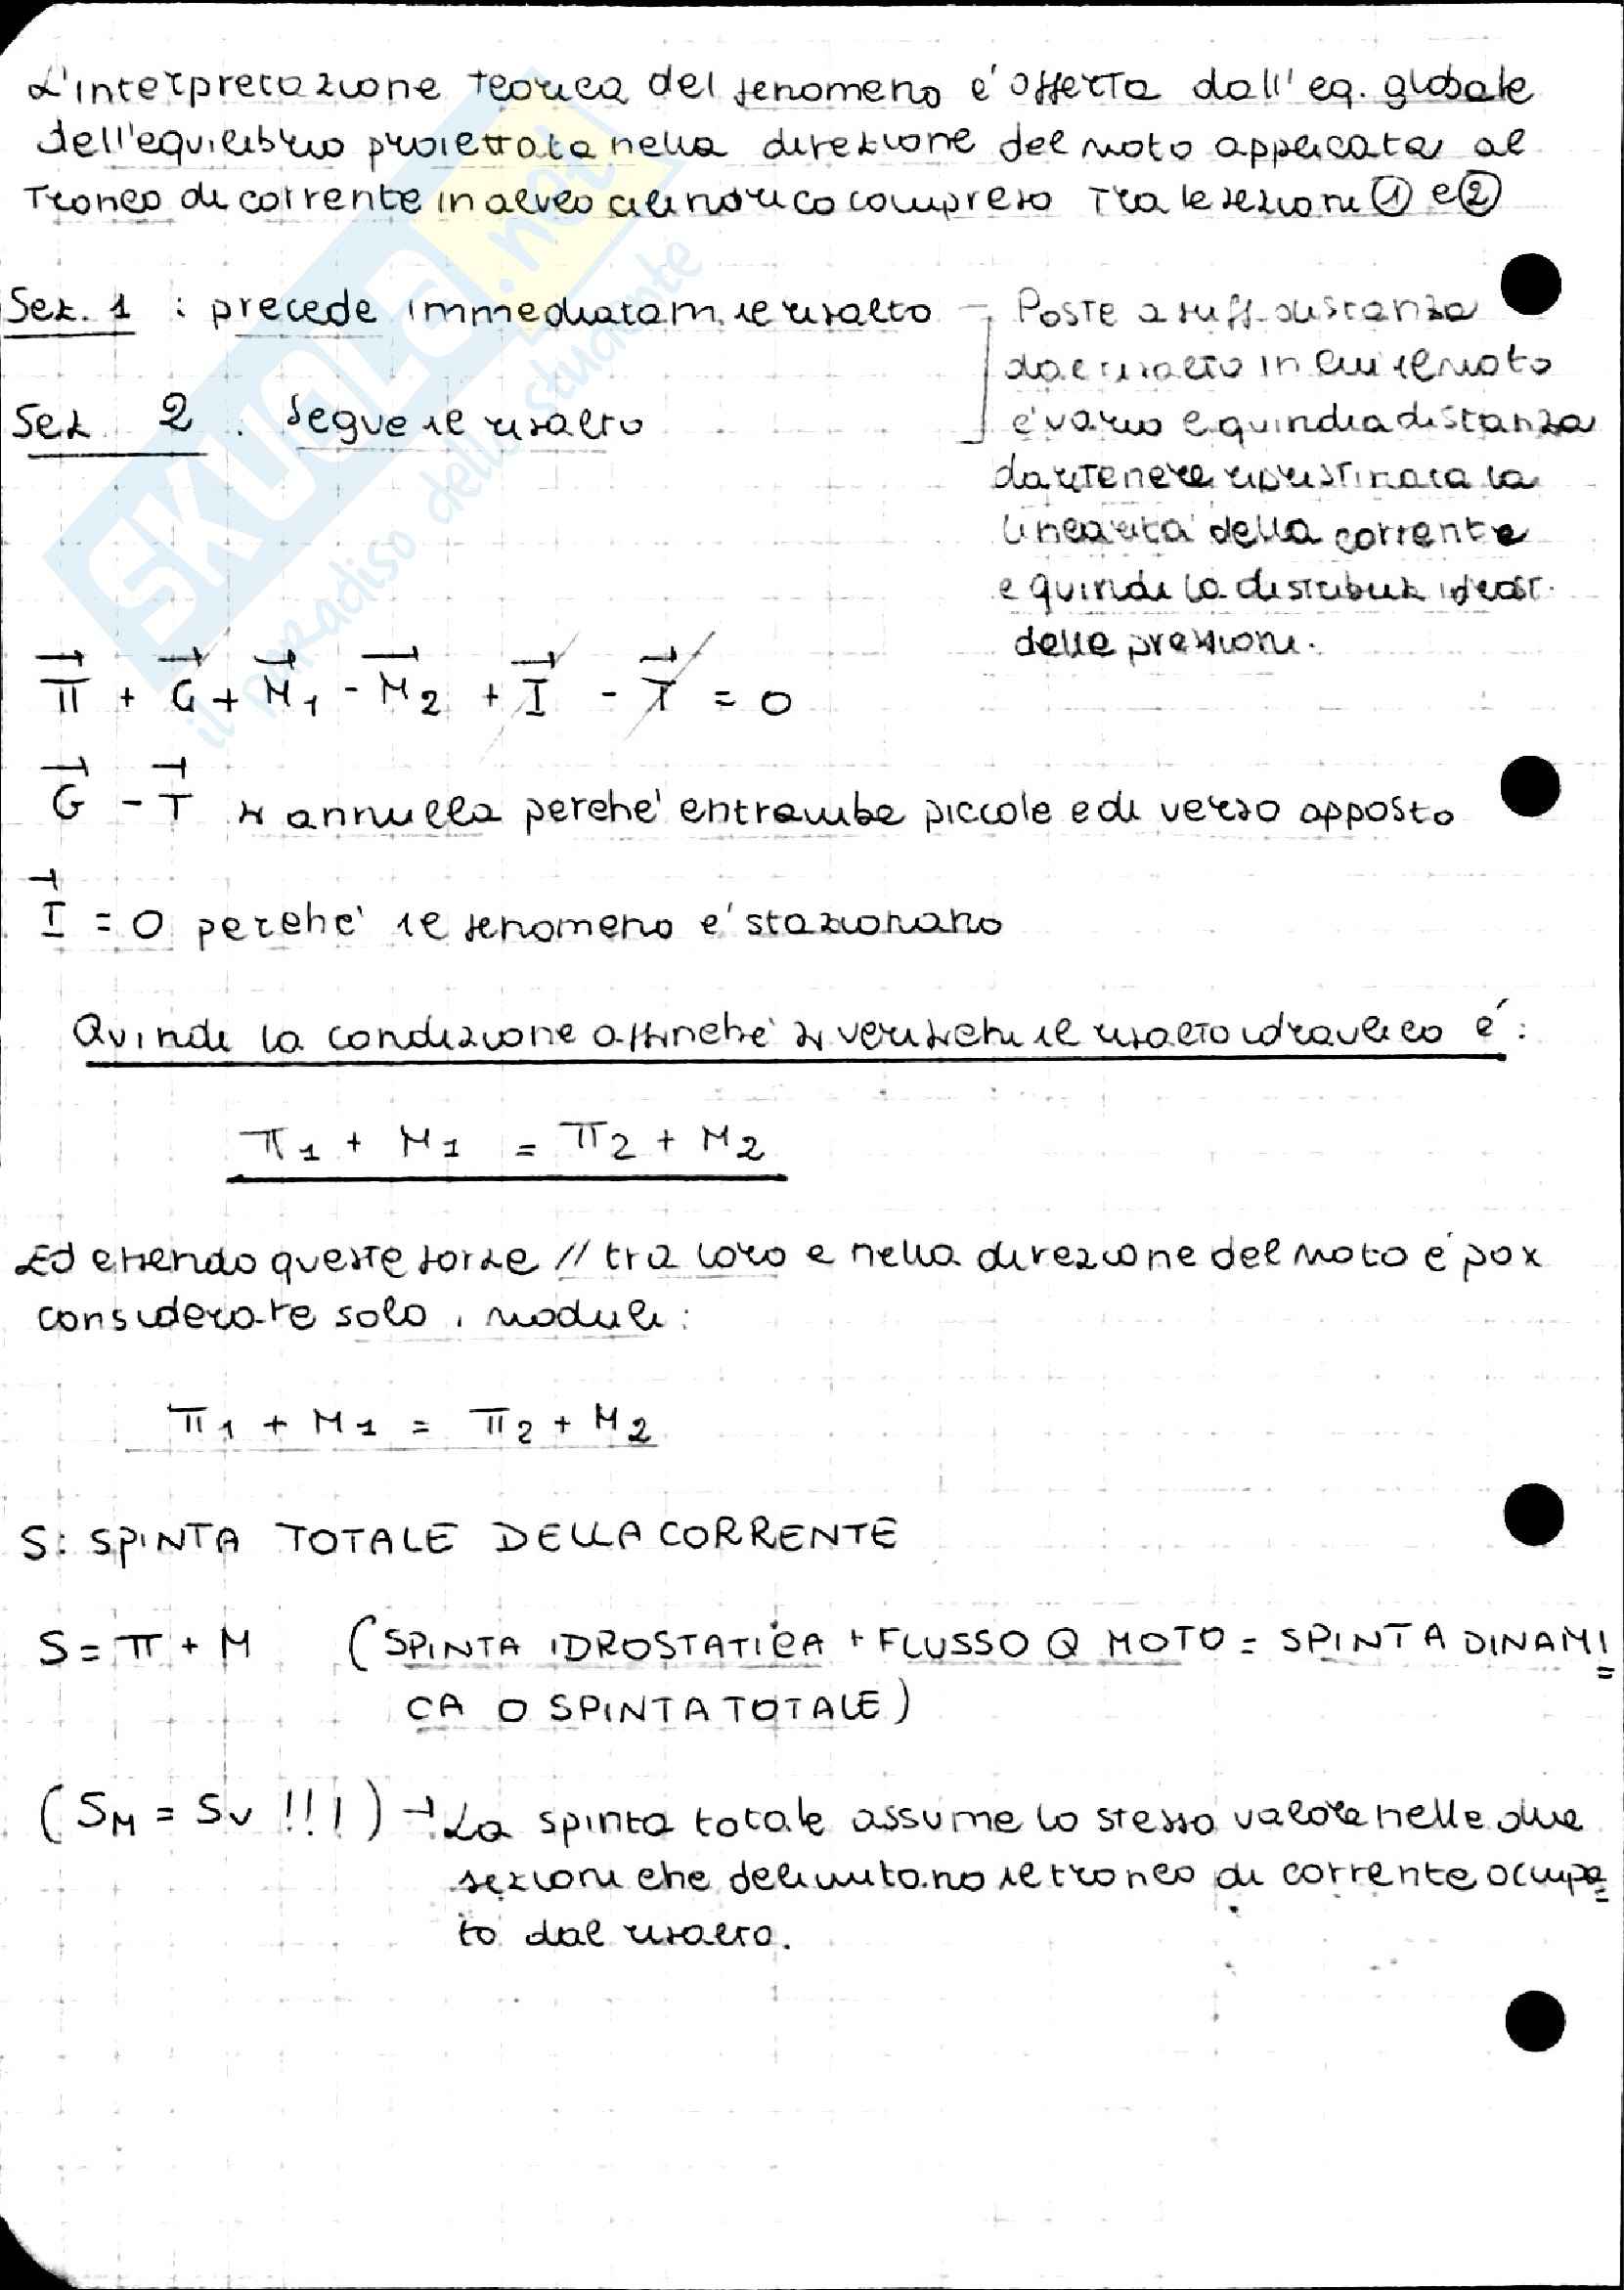 L'interpretazione teorica del fenomeno é offerta dall'eq. globale
dell'equilibrio proiettata nella direzione del moto applicata al
tronco di corrente in alveo cilindrico compreso tra le sezioni ① e ②
Sez. 1 : precede immediatam. il risalto
Sez. 2 . Segue il risalto
Poste a suff. distanza
dal risalto in cui il moto
é vario e quindi a distanza
da ritenere ripristinata la
linearità della corrente
e quindi la distribuz idrost.
delle pressioni.
Π + G + M1 - M2 + I - T = 0
G - T si annulla perche' entrambe piccole e di verso opposto
I = 0 perche' il fenomeno e' stazionario
Quindi la condizione affinche' si verifichi il risalto idraulico é :
Π1 + M1 = Π2 + M2
Ed essendo queste forze // tra loro e nella direzione del moto é pox
considerare solo i moduli :
Π1 + M1 = Π2 + M2
S: SPINTA TOTALE DELLA CORRENTE
S = Π + M (SPINTA IDROSTATICA + FLUSSO Q MOTO = SPINTA DINAMI=
CA O SPINTA TOTALE)
(SM = SV !!!) → La spinta totale assume lo stesso valore nelle due
sezioni che delimitano il tronco di corrente occupa=
to dal risalto.
SKUOLA.net
il paradiso dello studente